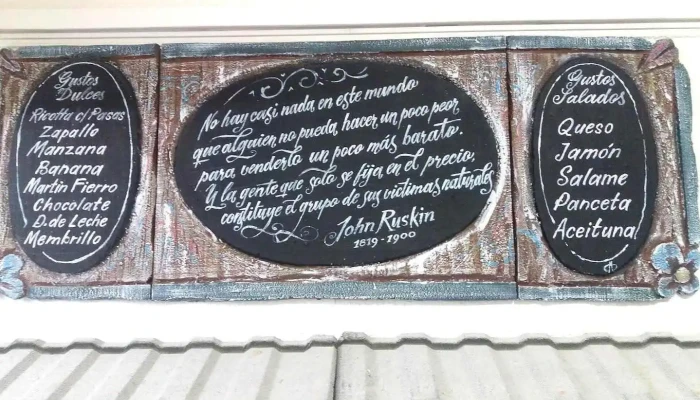 Gustos
Dulces
Ricotta c/ Pasas
Zapallo
Manzana
Banana
Martín Fierro
Chocolate
D. de Leche
Membrillo
No hay casi nada en este mundo
que alguien no pueda hacer un poco peor
para venderlo un poco más barato.
Y la gente que solo se fija en el precio,
constituye el grupo de sus víctimas naturales
John Ruskin
1819-1900
Gustos
Salados
Queso
Jamón
Salame
Panceta
Aceituna